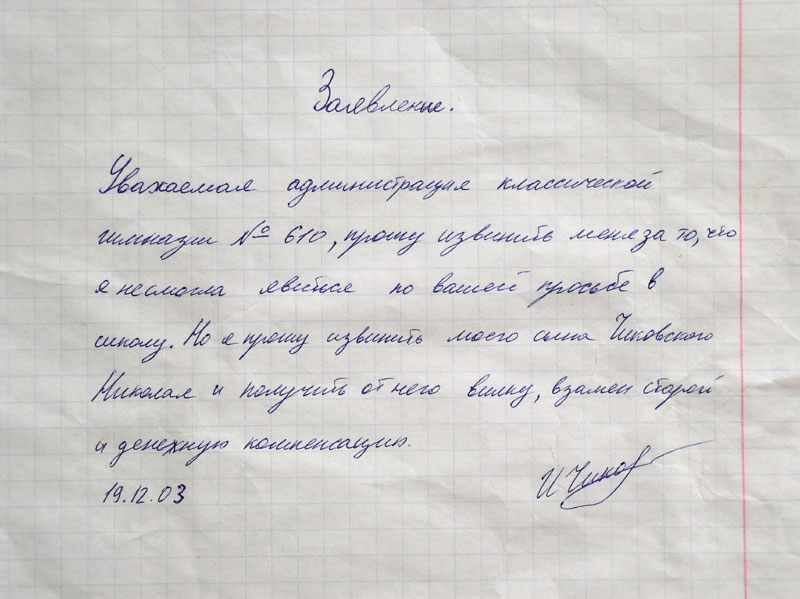 Заявление.
Уважаемая администрация классической
гимназии № 610, прошу извинить меня за то, что
я несмогла явиться по вашей просьбе в
школу. Но я прошу извинить моего сына Чиковского
Николая и получить от него вилку, взамен старой
и денежную компенсацию.
19.12.03